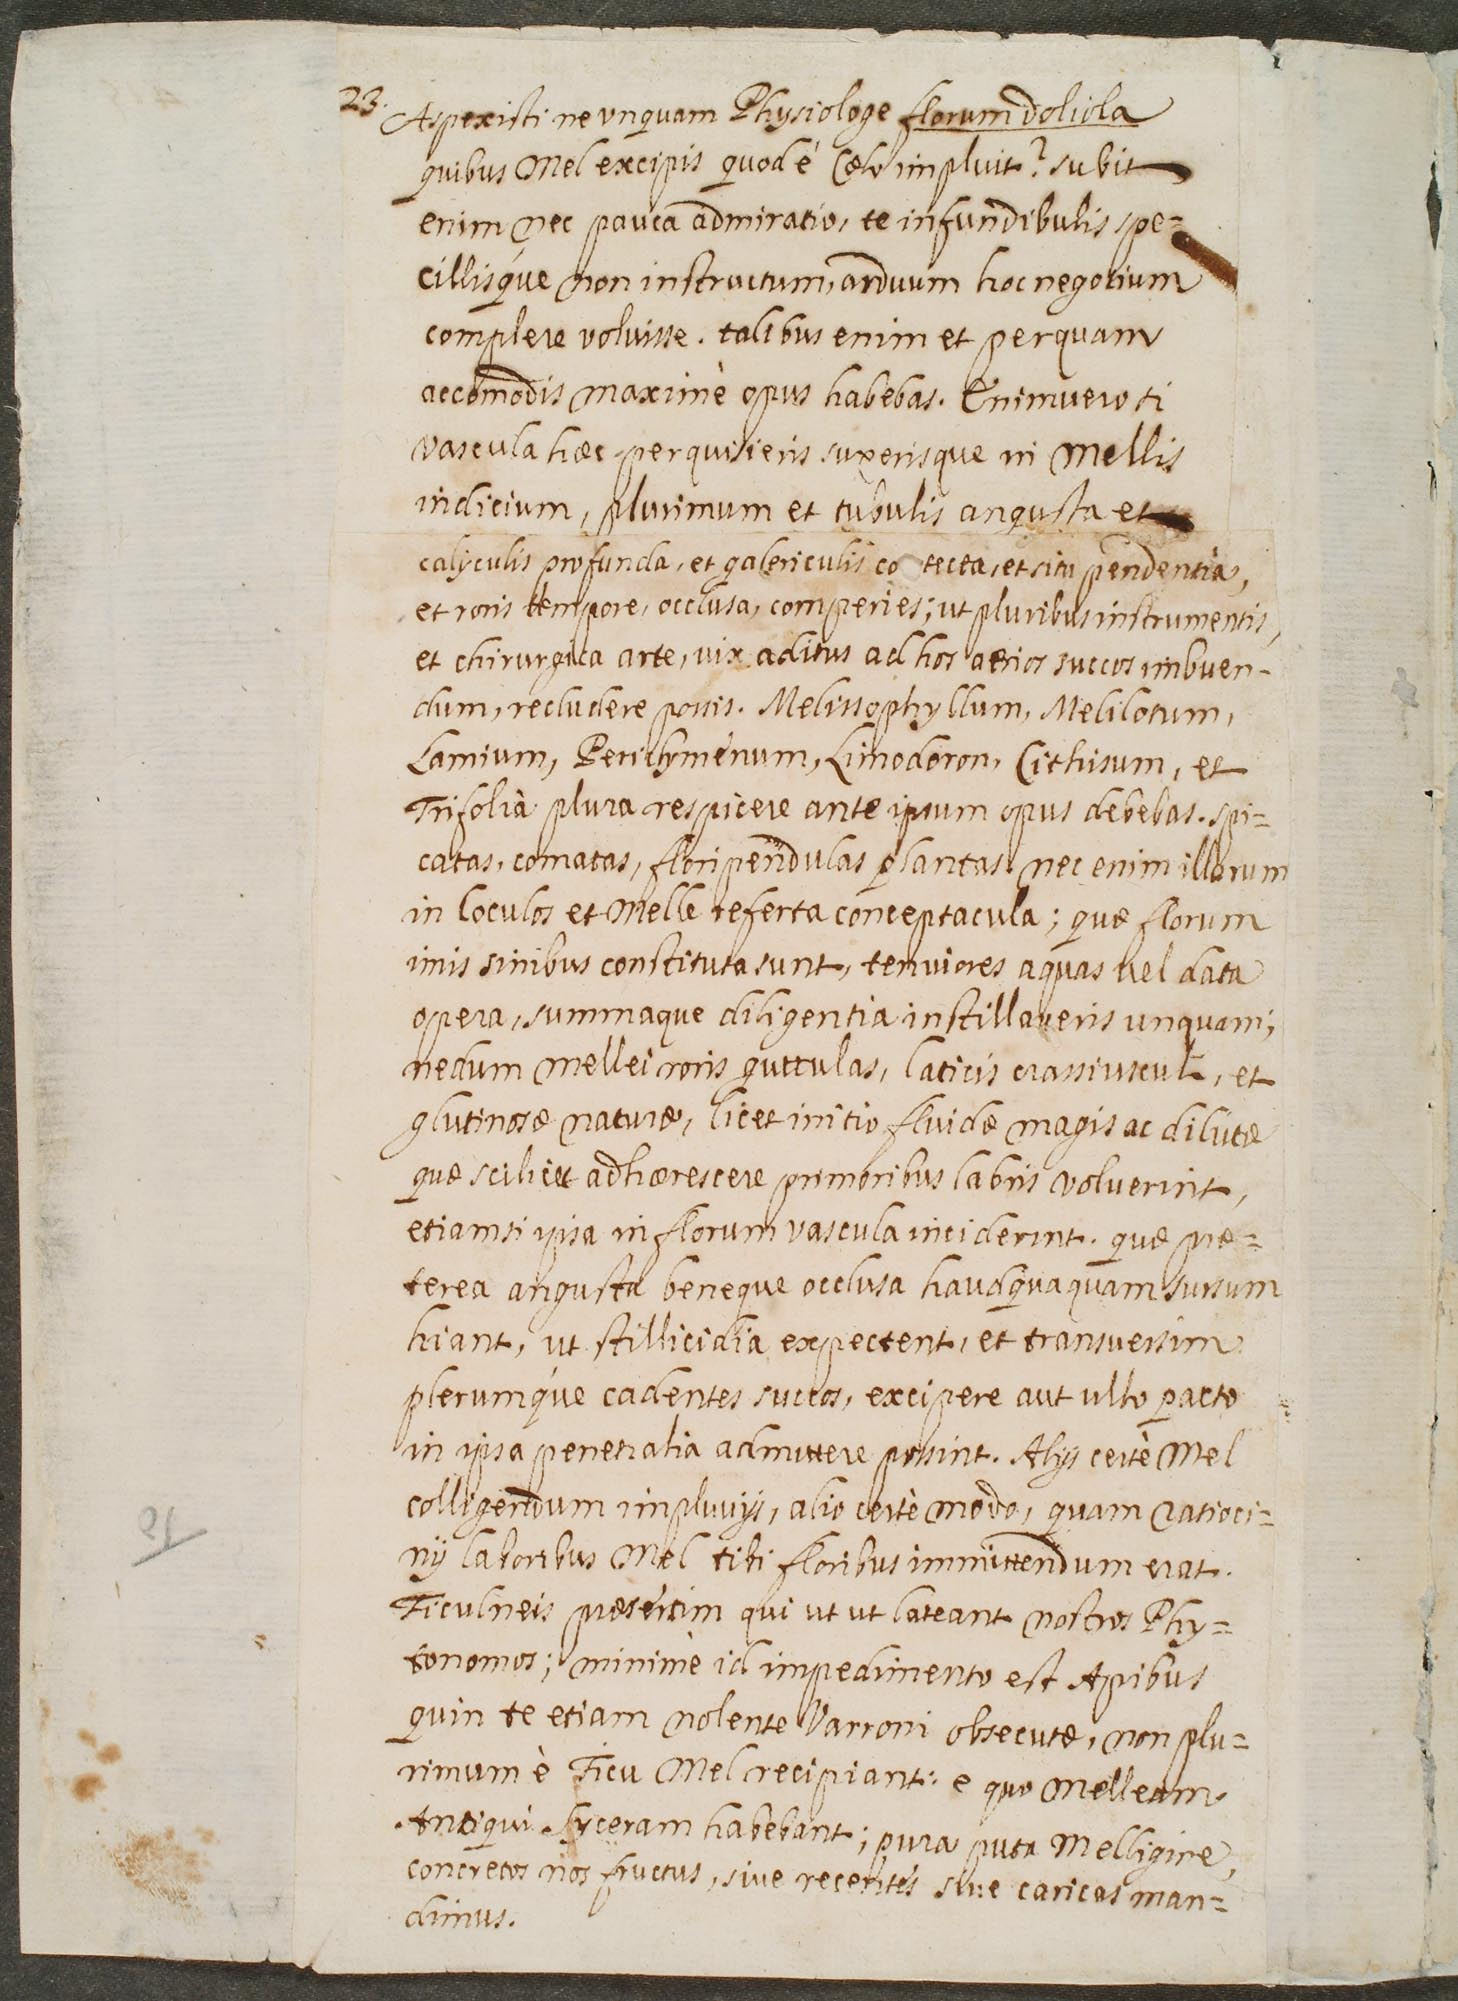 23. Aspexisti ne vnquam Physiologe florum doliola
quibus Mel excipis quod è Cælo impluit? subit
enim nec pauca admiratio, te infundibulis spe=
cillisque non instructum, arduum hoc negotium
complere voluisse. talibus enim et perquam
accomodis maximè opus habebas. Enimuero si
vascula hæc perquisieris suxerisque in Mellis
indicium, plurimum et tubulis angusta et
calyculis profunda, et galericulis co tecta, et situ pendentia,
et roris tempore, occlusa, comperies; ut pluribus instrumentis,
et chirurgica arte, uix aditus ad hos aërios succos imbuen-
dum, recludere possis. Melissophyllum, Melilotum,
Lamium, Periclymenum, Limodoron, Cithisum, et
Trifolia plura respicere ante ipsum opus debebas. spi=
catas, comatas, floripendulas plantas. nec enim illorum
in loculos et Melle referta conceptacula; quæ florum
imis sinibus constituta sunt, tenuiores aquas uel data
opera, summaque diligentia instillaueris unquam;
nedum mellei roris guttulas, laticis crassiuscul, et
glutinosæ naturæ, licet initio fluidæ magis ac dilutæ
quæ scilicet adhærescere primoribus labris voluerint,
etiamsi ipsa in florum vascula inciderint. quæ præ=
terea angusta beneque occlusa haudquaquam sursum
hiant, ut stillicidia expectent, et transuersim
plerumque cadentes succos, excipere aut ullo pacto
in ipsa penetralia admittere possint. Alijs certè Mel
colligendum impluuijs, alio certè modo, quam ratioci=
nij laboribus Mel tibi floribus immittendum erat.
Ficulneis præsertim qui ut ut lateant nostros Phy=
tonomos; minimè id impedimento est Apibus
quin te etiam nolente Varroni obsecutæ, non plu=
rimum è Ficu Mel recipiant: e quo Melleam
Antiqui Syceram habebant; pura puta Melligine,
concretos nos fructus, siue recentes siue caricas man=
dimus.